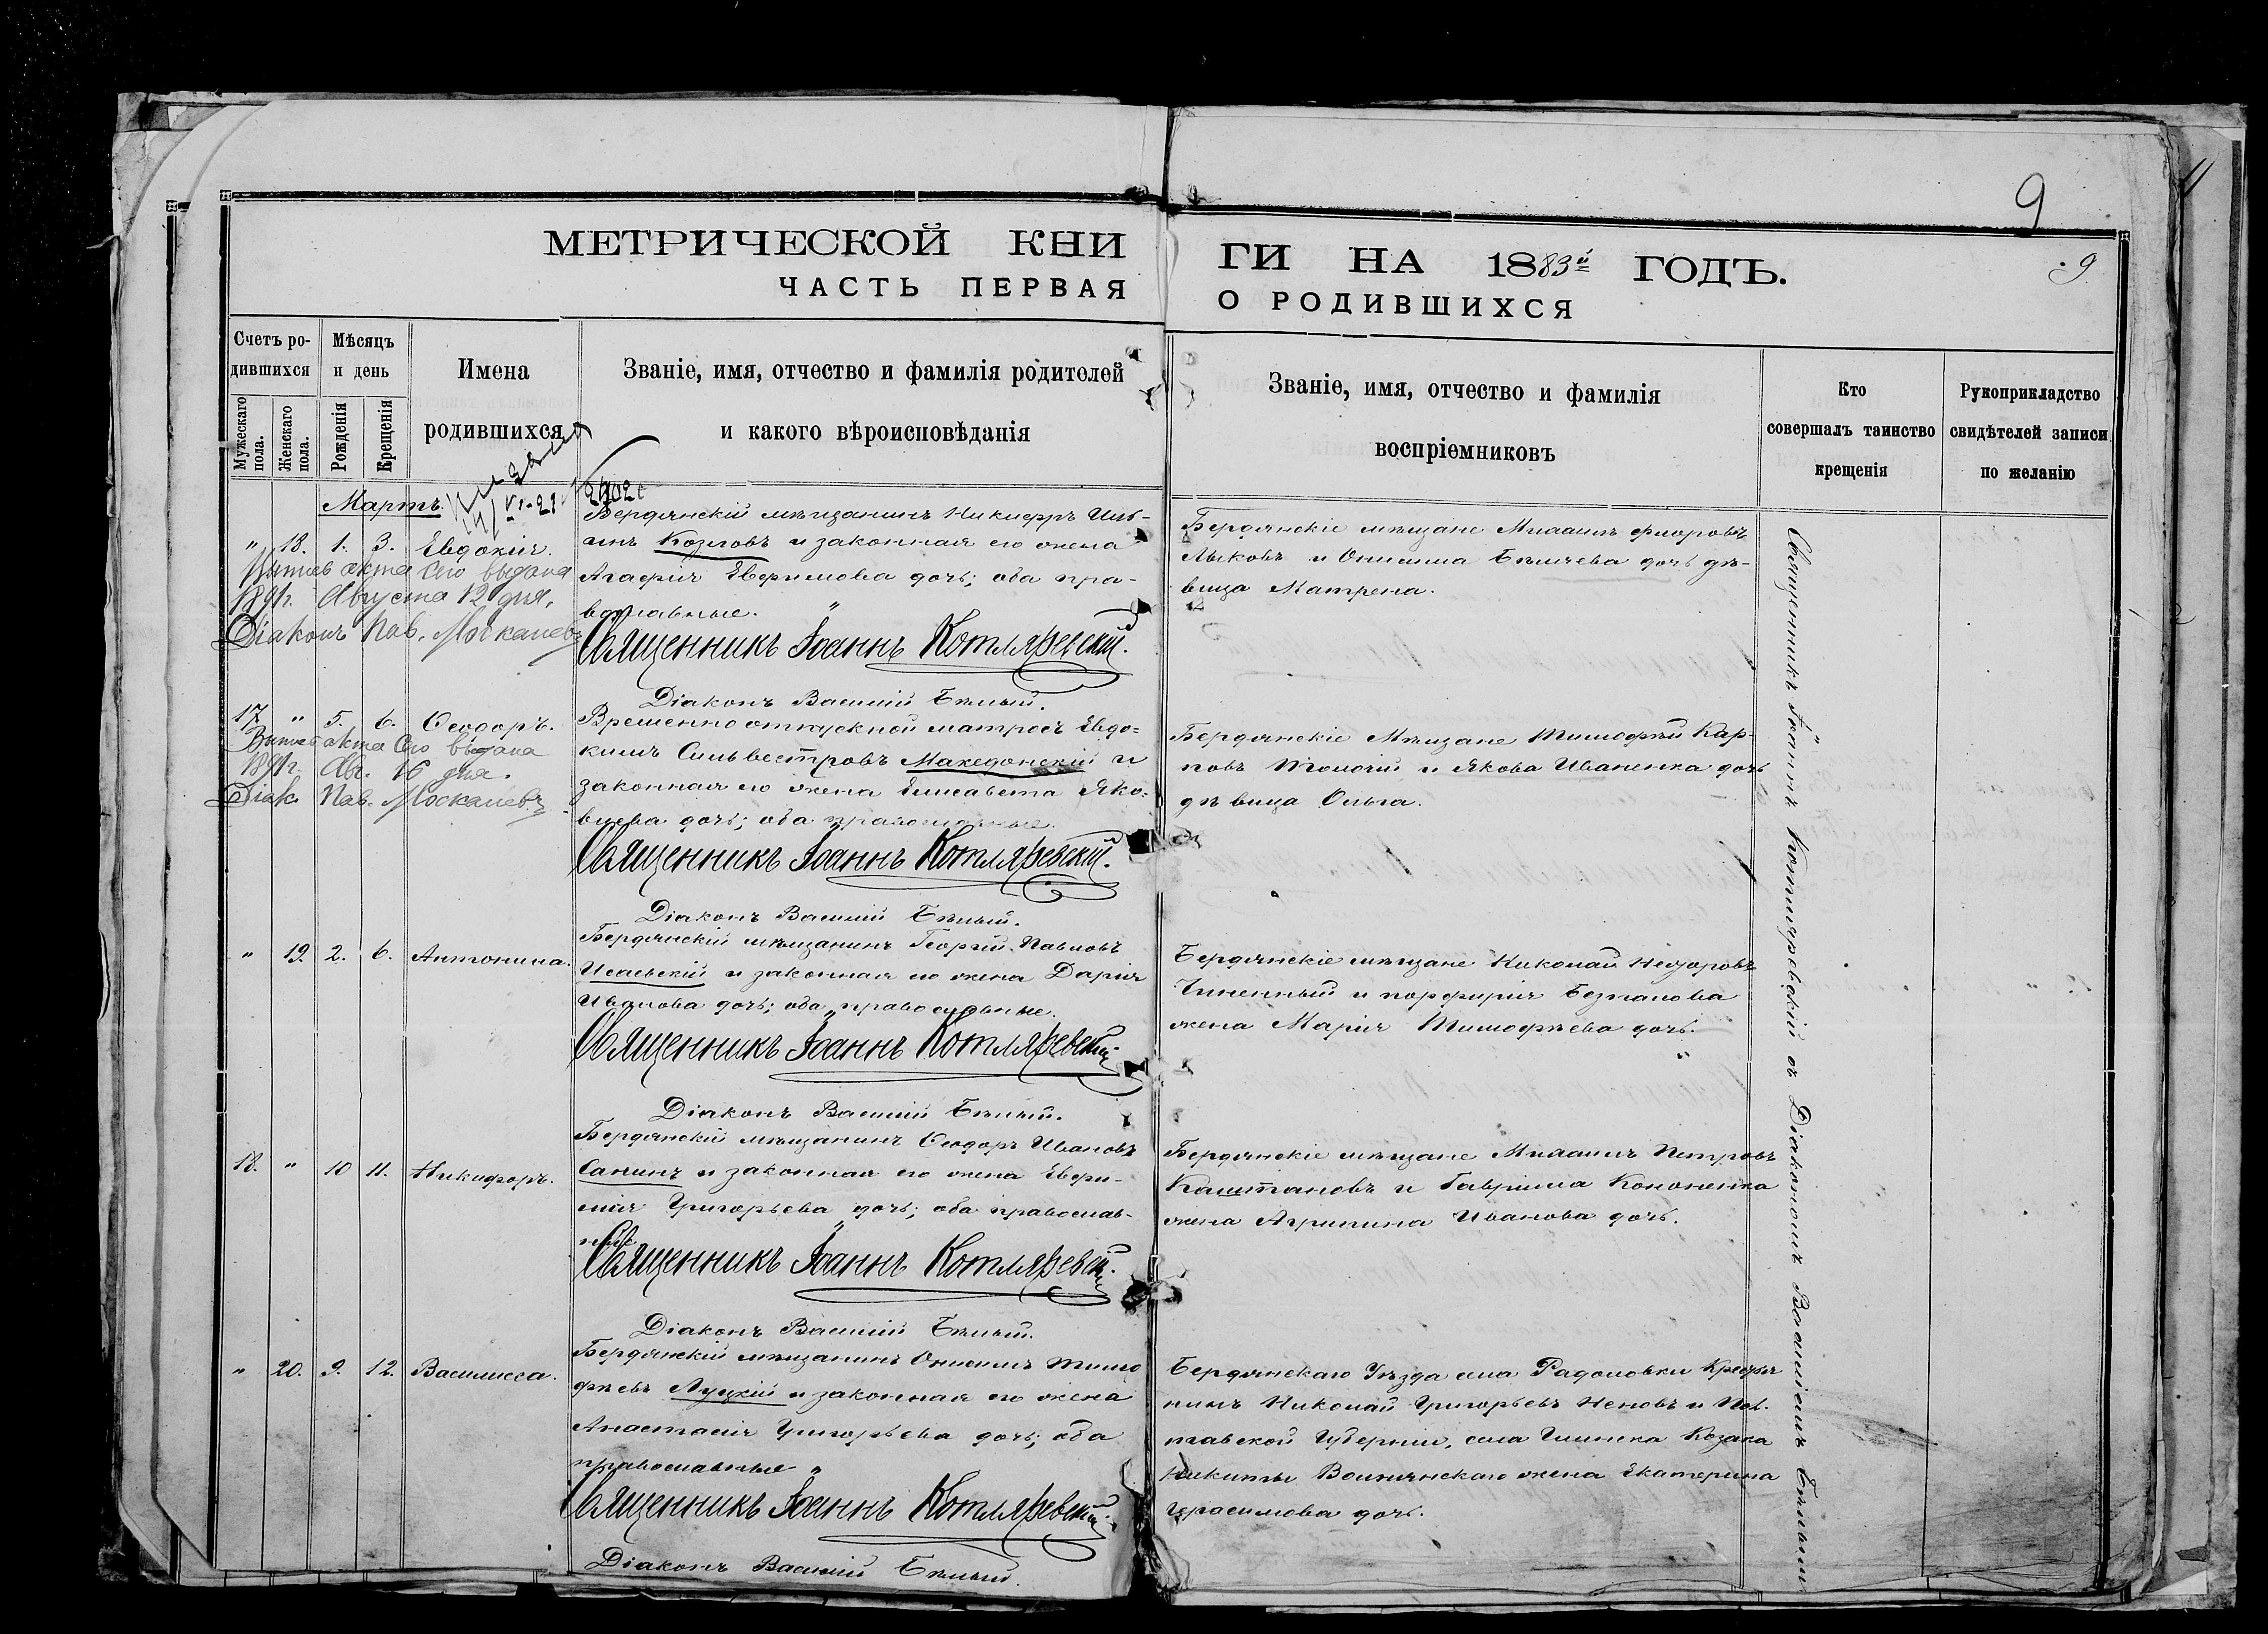 9
МЕТРИЧЕСКОЙ КНИ
ГИ НА 1883й ГОДЪ.
9.
ЧАСТЬ ПЕРВАЯ
О РОДИВШИХСЯ
Счетъ ро-
дившихся
Мужескаго пола.
Женскаго пола.
Мѣсяцъ
и день
Рожденія
Крещенія
Имена
родившихся
Званіе, имя, отчество и фамилія родителей
и какого вѣроисповѣданія
Званіе, имя, отчество и фамилія
воспріемниковъ
Кто
совершалъ таинство
крещенія
Рукоприкладство
свидѣтелей записи
по желанію
Мартъ.
" 18. 1. 3. Евдокія.
акта сего выдана
1891г. Августа 12 дня,
Діаконъ Пав. Москалевъ
Бердянскій мѣщанинъ Никифоръ Иль-
инъ Козловъ и законная его жена
Агафія Евфимова дочь; оба пра-
вославные.
Священникъ Іоаннъ Котляревскій.
Діаконъ Василій Бѣлый.
Бердянскіе мѣщане Михаилъ
Лыковъ и дочь дѣ-
вица Матрена.
17 " 5. 6. Ѳеодоръ.
акта сего выдана
1891г. Авг. 16 дня.
Діак. Пав. Москалевъ
Временно отпускной матросъ Евдо-
кимъ Сильвестровъ Македонскій и
законная его жена Елисавета Яко-
влева дочь; оба православные.
Священникъ Іоаннъ Котляревскій.
Діаконъ Василій Бѣлый.
Бердянскіе Мѣщане Тимофей Кар-
повъ и Якова Иваненка дочь
дѣвица Ольга.
" 19. 2. 6. Антонина.
Бердянскій мѣщанинъ Георгій Павловъ
Исаевскій и законная его жена Дарія
Иванова дочь; оба православные.
Священникъ Іоаннъ Котляревскій
Діаконъ Василій Бѣлый.
Бердянскіе мѣщане Николай Ѳеодоровъ
и Порфирія
жена Марія Тимофѣева дочь.
18. " 10 11. Никифоръ.
Бердянскій мѣщанинъ Ѳеодоръ Ивановъ
Санинъ и законная его жена Евфи-
мія Григорьева дочь; оба православ-
ные
Священникъ Іоаннъ Котляревскій.
Діаконъ Василій Бѣлый.
Бердянскіе мѣщане Михаилъ Петровъ
Каштановъ и Гавріила Кононенка
жена Агрипина Иванова дочь.
" 20. 9. 12. Василисса.
Бердянскій мѣщанинъ Онисимъ Тимо
фѣевъ Луцкій и законная его жена
Анастасія Григорьева дочь; оба
православные
Священникъ Іоаннъ Котляревскій.
Діаконъ Василій Бѣлый.
Бердянскаго Уѣзда села Радоловки Крестья
нинъ Николай Григорьевъ Неновъ и Пол-
тавской Губерніи, села Козака
Никиты жена Екатерина
Герасимова дочь.
Священникъ Іоаннъ Котляревскій съ Діакономъ Василіемъ Бѣлымъ